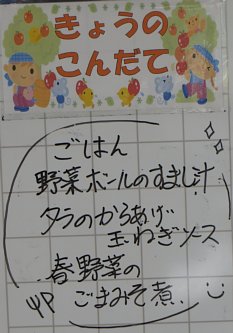 きょうの
こんだて
ごはん
野菜ボールのすまし汁
タラのからあげ
玉ねぎソース
春野菜の
ごまみそ煮